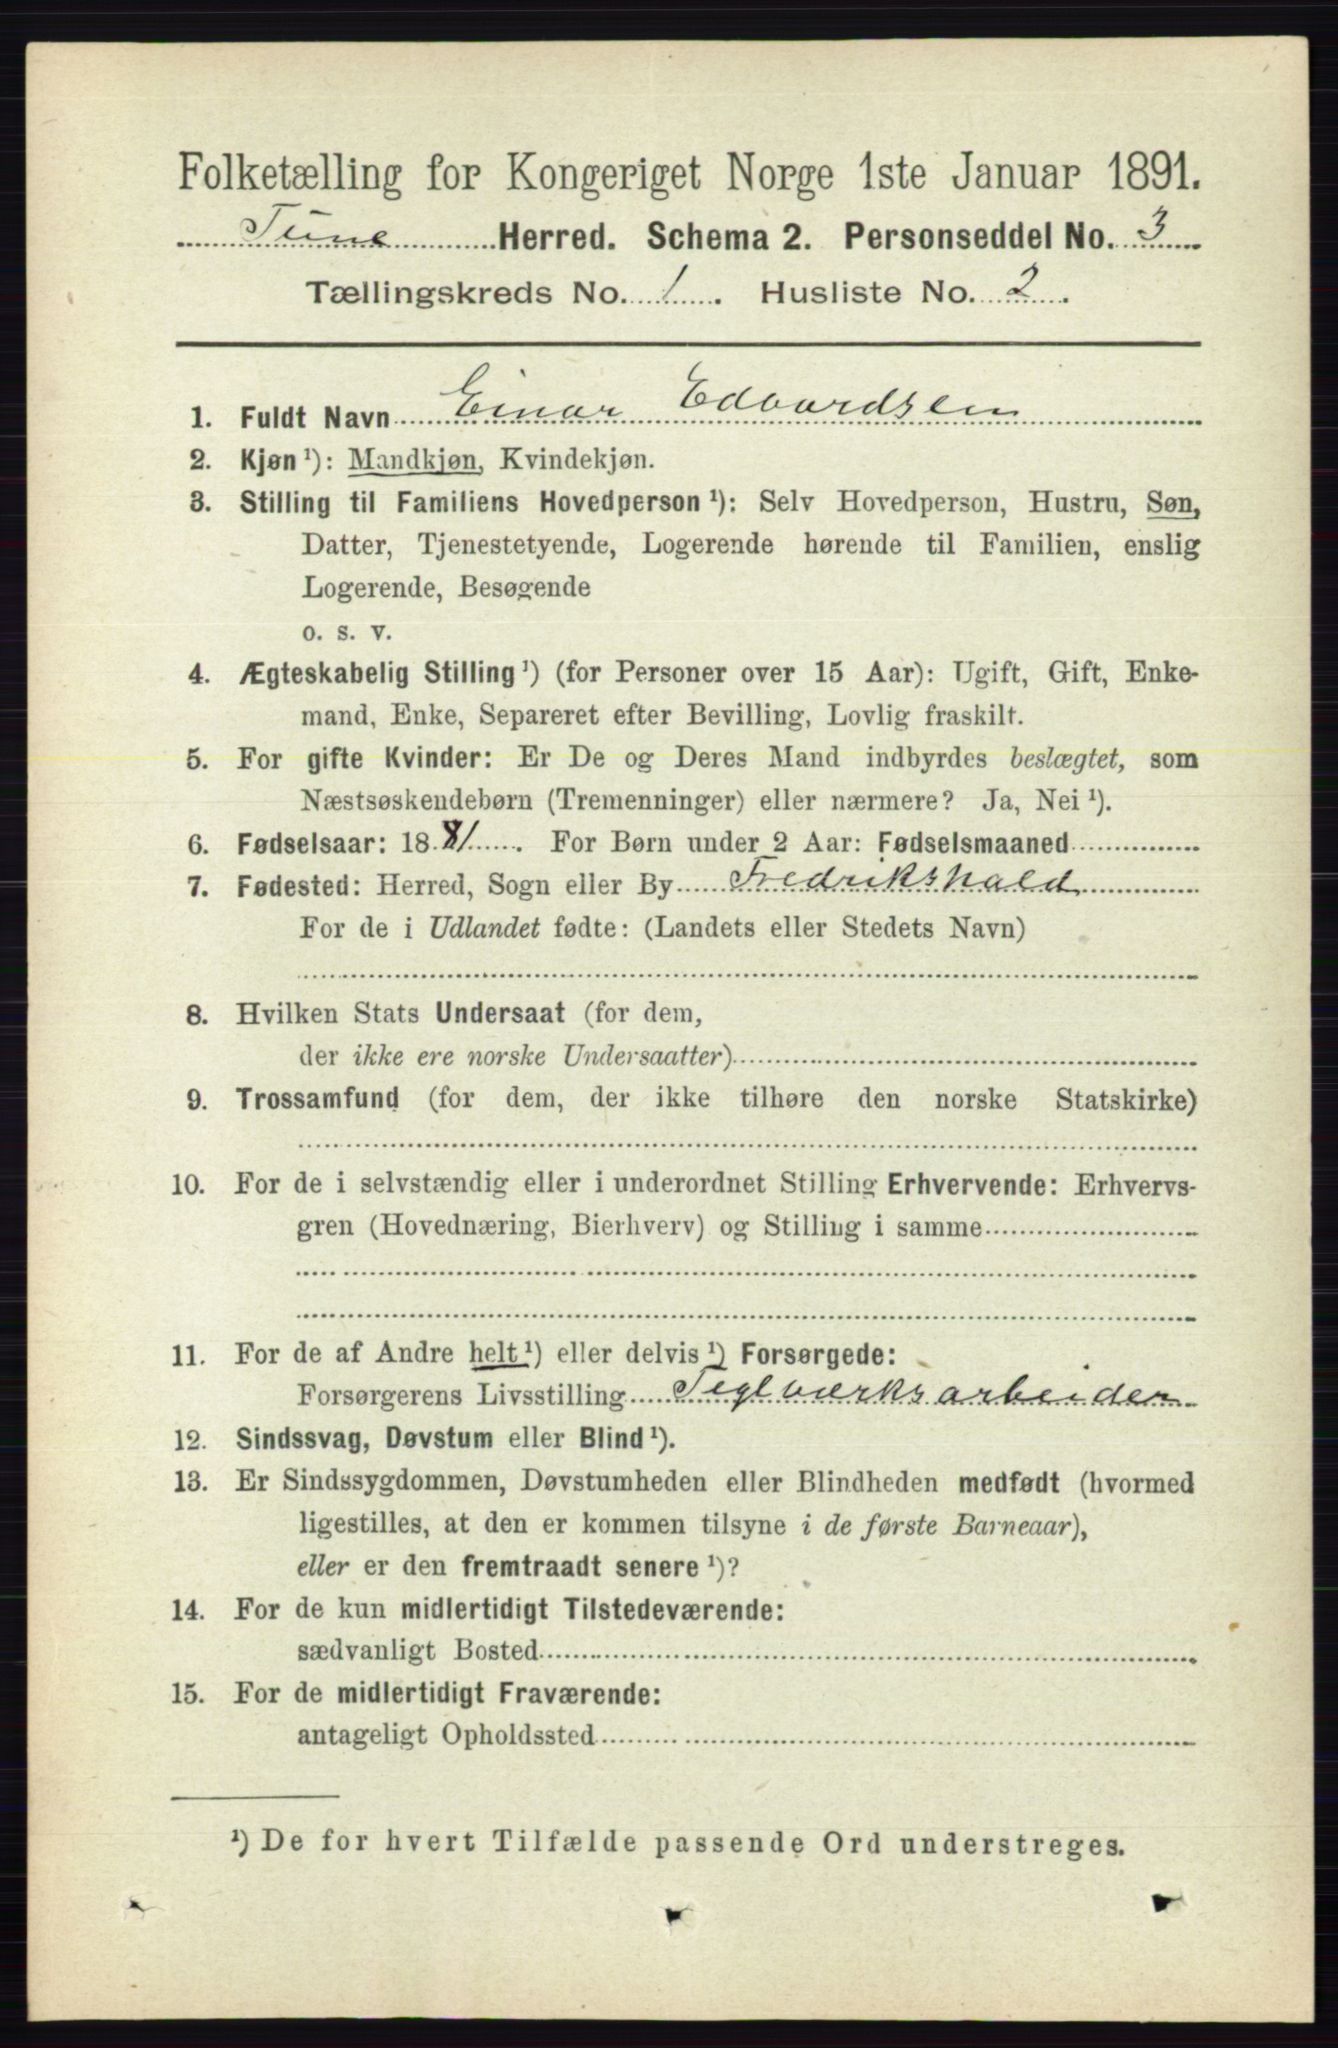 Folketælling for Kongeriget Norge 1ste Januar 1891.
Tune Herred. Schema 2. Personseddel No. 3
Tællingskreds No. 1. Husliste No. 2.
1. Fuldt Navn Einar Edvardsen
2. Kjøn ¹): Mandkjøn, Kvindekjøn.
3. Stilling til Familiens Hovedperson ¹): Selv Hovedperson, Hustru, Søn,
Datter, Tjenestetyende, Logerende hørende til Familien, enslig
Logerende, Besøgende
o. s. v.
4. Ægteskabelig Stilling ¹) (for Personer over 15 Aar): Ugift, Gift, Enke-
mand, Enke, Separeret efter Bevilling, Lovlig fraskilt.
5. For gifte Kvinder: Er De og Deres Mand indbyrdes beslægtet, som
Næstsøskendebørn (Tremenninger) eller nærmere? Ja, Nei ¹).
6. Fødselsaar: 1881. For Børn under 2 Aar: Fødselsmaaned
7. Fødested: Herred, Sogn eller By Fredrikshald
For de i Udlandet fødte: (Landets eller Stedets Navn)
8. Hvilken Stats Undersaat (for dem,
der ikke ere norske Undersaatter)
9. Trossamfund (for dem, der ikke tilhøre den norske Statskirke)
10. For de i selvstændig eller i underordnet Stilling Erhvervende: Erhvervs-
gren (Hovednæring, Bierhverv) og Stilling i samme
11. For de af Andre helt ¹) eller delvis ¹) Forsørgede:
Forsørgerens Livsstilling Teglværksarbeider
12. Sindssvag, Døvstum eller Blind ¹).
13. Er Sindssygdommen, Døvstumheden eller Blindheden medfødt (hvormed
ligestilles, at den er kommen tilsyne i de første Barneaar),
eller er den fremtraadt senere ¹)?
14. For de kun midlertidigt Tilstedeværende:
sædvanligt Bosted
15. For de midlertidigt Fraværende:
antageligt Opholdssted
¹) De for hvert Tilfælde passende Ord understreges.